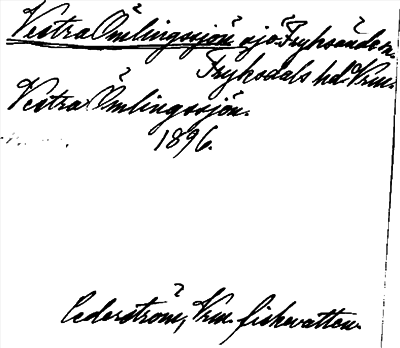 Vestra Ömlingssjön sjö Fryksände sn.
Fryksdals hd. Vrm.
Vestra Ömlingssjön.
1896.
Cederström, Vrm. fiskevatten.